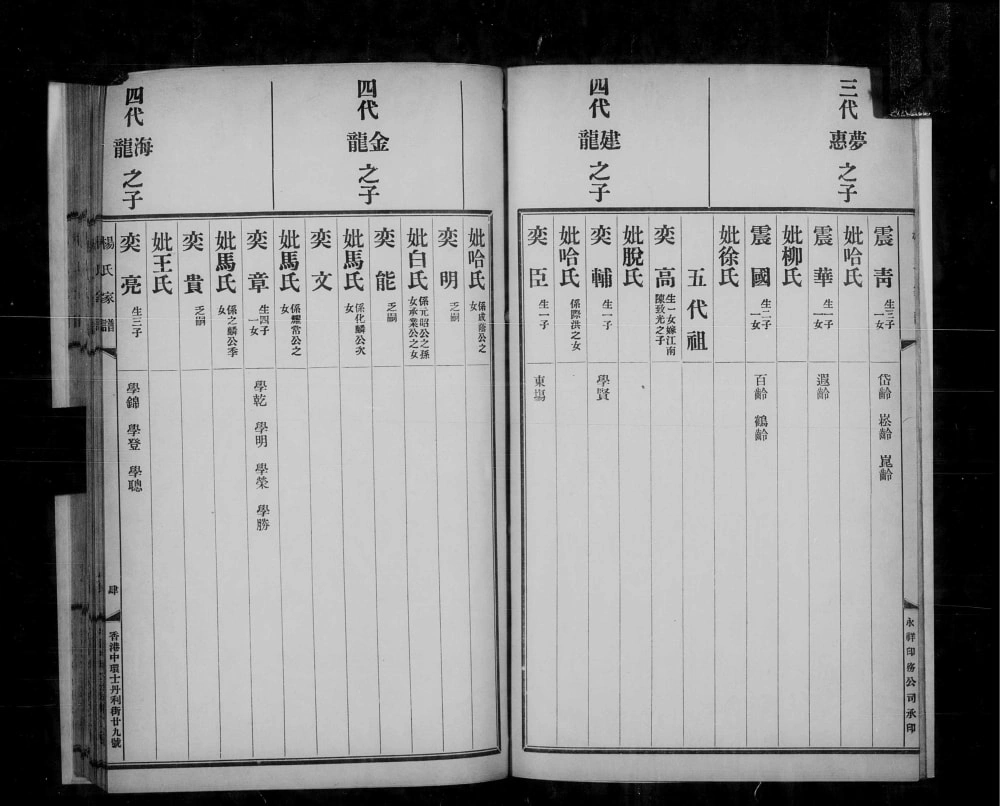 三代 夢惠 之子
震青 生三子一女 岱齡 崧齡 崑齡
妣哈氏
震華 生一子一女 遐齡
妣柳氏
震國 生二子一女 百齡 鶴齡
妣徐氏
五代祖
四代 建龍 之子
奕高 生一女嫁江南陳致光之子
妣脫氏
奕輔 生一子 學賢
妣哈氏 係際洪之女
奕臣 生一子 東暘
永祥印務公司承印
妣哈氏 係成蔭公之女
四代 金龍 之子
奕明 乏嗣
妣白氏 係元昭公之孫女承業公之女
奕能 乏嗣
妣馬氏 係化麟公次女
奕文
妣馬氏 係耀常公之女
四代 海龍 之子
奕章 生四子一女 學乾 學明 學榮 學勝
妣馬氏 係之麟公季女
奕貴 乏嗣
妣王氏
奕亮 生三子 學錦 學登 學聰
楊氏家譜
肆
香港中環士丹利街廿九號